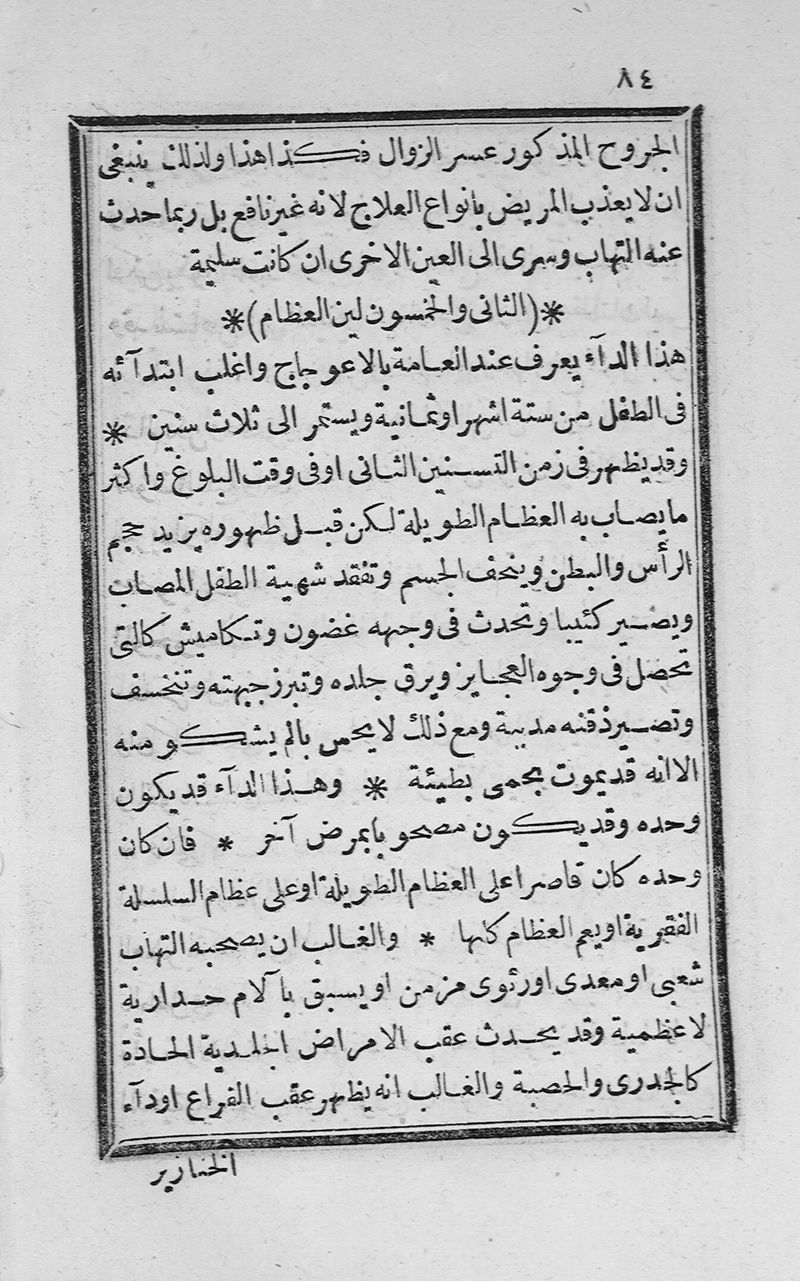 ٨٤
الجروح المذكور عسر الزوال فكذا هذا ولذلك ينبغى
ان لا يعذب المريض بانواع العلاج لانه غير نافع بل ربما حدث
عنه التهاب وسرى الى العين الاخرى ان كانت سليمة
*(الثانى والخمسون لين العظام)*
هذا الدآء يعرف عند العامة بالاعوجاج واغلب ابتدآئه
فى الطفل من ستة اشهر او ثمانية ويستمر الى ثلاث سنين *
وقد يظهر فى زمن التسنين الثانى او فى وقت البلوغ واكثر
ما يصاب به العظام الطويلة لكن قبل ظهوره يزيد حجم
الرأس والبطن وينحف الجسم وتفقد شهية الطفل المصاب
ويصير كئيبا وتحدث فى وجهه غضون وتكاميش كالتى
تحصل فى وجوه العجايز ويرق جلده وتبرز جبهته وتنخسف
وتصير ذقنه مدببة ومع ذلك لا يحس بالم يشكو منه
الا انه قد يموت بحمى بطيئة * وهذا الدآء قد يكون
وحده وقد يكون مصحوبا بمرض آخر * فان كان
وحده كان قاصرا على العظام الطويلة او على عظام السلسلة
الفقرية او يعم العظام كلها * والغالب ان يصحبه التهاب
شعبى او معدى او رئوى مزمن او يسبق بآلام حدارية
لا عظمية وقد يحدث عقب الامراض الجلدية الحادة
كالجدرى والحصبة والغالب انه يظهر عقب القراع او دآء
الخنازير